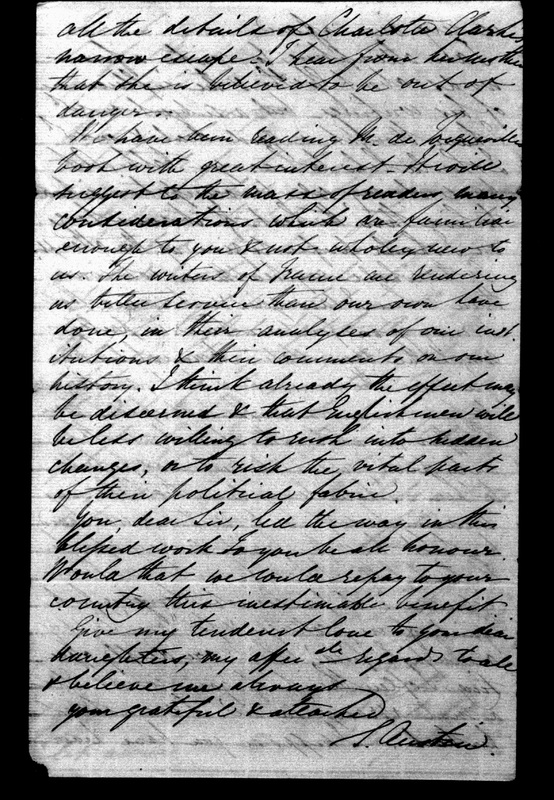 all the details of Charlotte Clark's
narrow escape. I hear from her mother
that she is believed to be out of
danger.
We have been reading M. de Tocqueville's
book with great interest. It will
suggest to the mass of readers many
considerations which are familiar
enough to you & not wholly new to
us. The writers of France are rendering
us better service than our own have
done, in their analyses of our inst
itutions & their comments on our
history. I think already the effect may
be discerned & that Englishmen will
be less willing to rush into sudden
changes, or to risk the vital parts
of their political fabric.
You, dear Sir, led the way in this
blessed work to you be all honour.
Would that we could repay to your
country this inestimable benefit
Give my tenderest love to your dear
daughters, my affec ate regards to all
& believe me always
your grateful & attached
S. Austin.